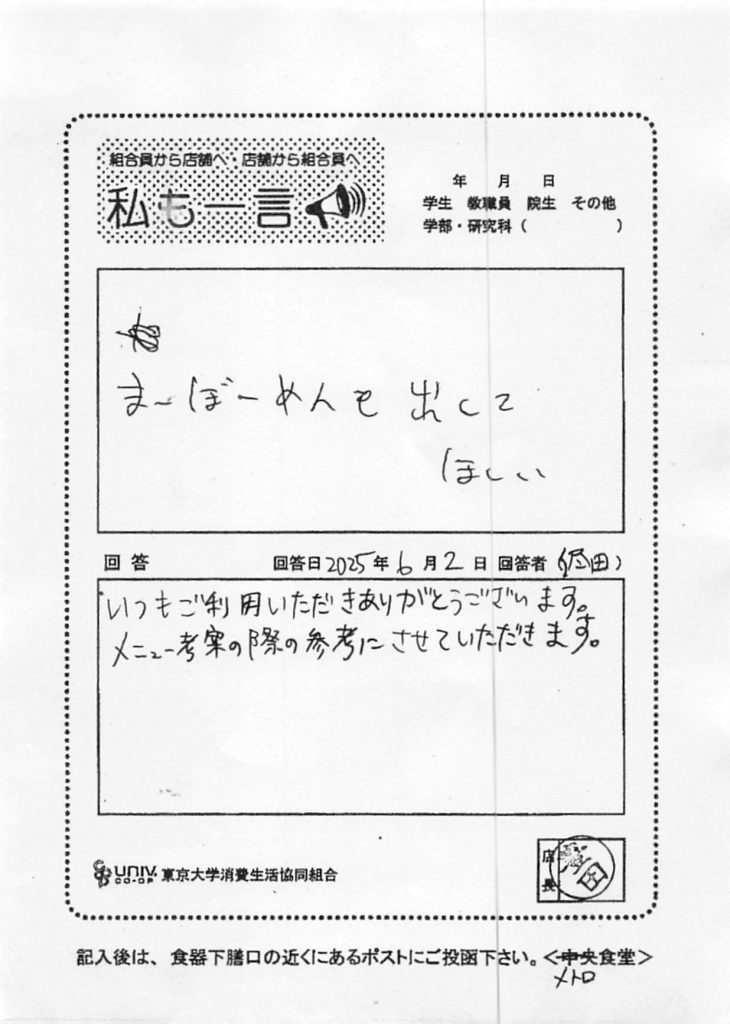 組合員から店舗へ・店舗から組合員へ
私も一言
年 月 日
学生 教職員 院生 その他
学部・研究科( )
まーぼーめんも 出して
ほしい
回答 回答日2025年6月2日 回答者( 田)
いつもご利用いただきありがとうございます。
メニュー考案の際の参考にさせていただきます。
UNIV. CO-OP 東京大学消費生活協同組合
店長
田
記入後は、食器下膳口の近くにあるポストにご投函下さい。<中央食堂>
メトロ